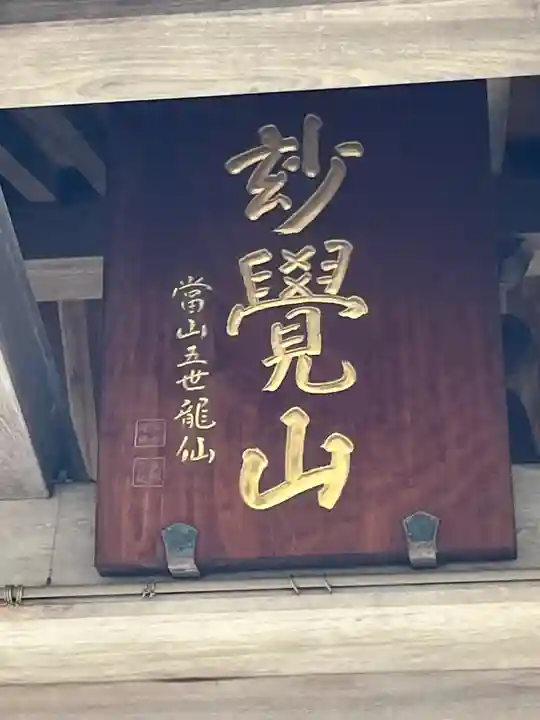 玅覺山
當山五世龍仙